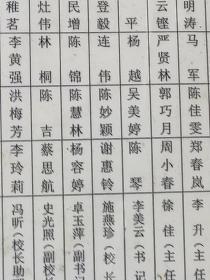 明涛 马军 陈佳雯 郑春岚 李升(主任
云铿 严贤林 郭巧月 周小春 徐佳(主任
平 杨越 吴美婷 陈琴 李美云(书记
登毅 连伟 陈妙颖 谢惠铃 施燕珍(校
民增 陈锦 陈慧林 杨容婷 卓玉萍(副书记
灶伟 林桐 陈吉 蔡思航 史光照(副校
稚茗 李黄强 洪梅芳 李玲莉 冯昕(校长助